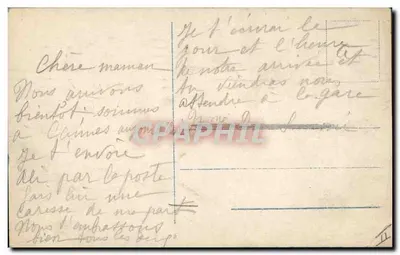 Chère maman
Nous arrivons
bientôt, sommes
à Cannes
Je t'envoie
par la poste
fais lui une
caresse de ma part
Nous t'embrassons
bien tous les
Je t'écrirai le
jour et l'heure
de notre arrivée et
tu viendras nous
attendre à la gare
CPA-PRO